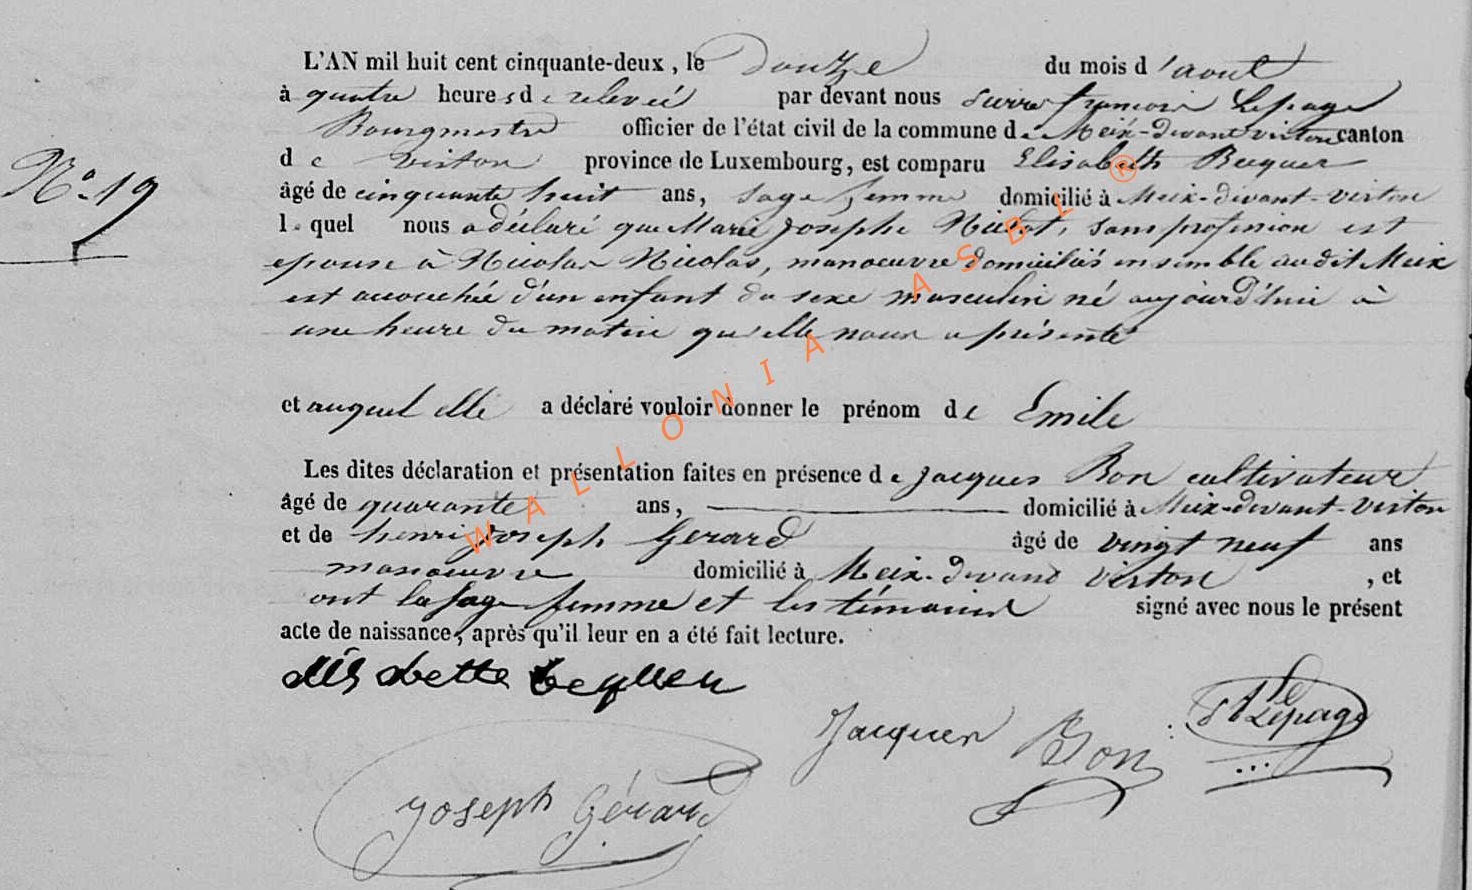 L'AN mil huit cent cinquante-deux, le douze du mois d'aout
à quatre heures de relevée par devant nous pierre françois Lepage
Bourgmestre officier de l'état civil de la commune de Meix-devant virton canton
de virton province de Luxembourg, est comparu Elisabeth Bequer
N° 19
âgé de cinquante huit ans, sage femme domicilié à Meix-devant-virton
l. quel nous a déclaré que Marie Josephe, sans profession est
epouse à Nicolas Nicolas, manoeuvre domiciliés ensemble audit Meix
est accouchée d'un enfant du sexe masculin né aujourd'hui à
une heure du matin qu'elle nous a présenté
et auquel elle a déclaré vouloir donner le prénom de Emile
Les dites déclaration et présentation faites en présence de Jacques Bon cultivateur
âgé de quarante ans, domicilié à Meix-devant-virton
et de henri Joseph Gerard âgé de vingt neuf ans
manoeuvre domicilié à Meix-devant virton, et
ont la sage femme et les témoins signé avec nous le présent
acte de naissance, après qu'il leur en a été fait lecture.
Jacques Bon
Lepage
Joseph Gérard
WALLONIA ASBL ®